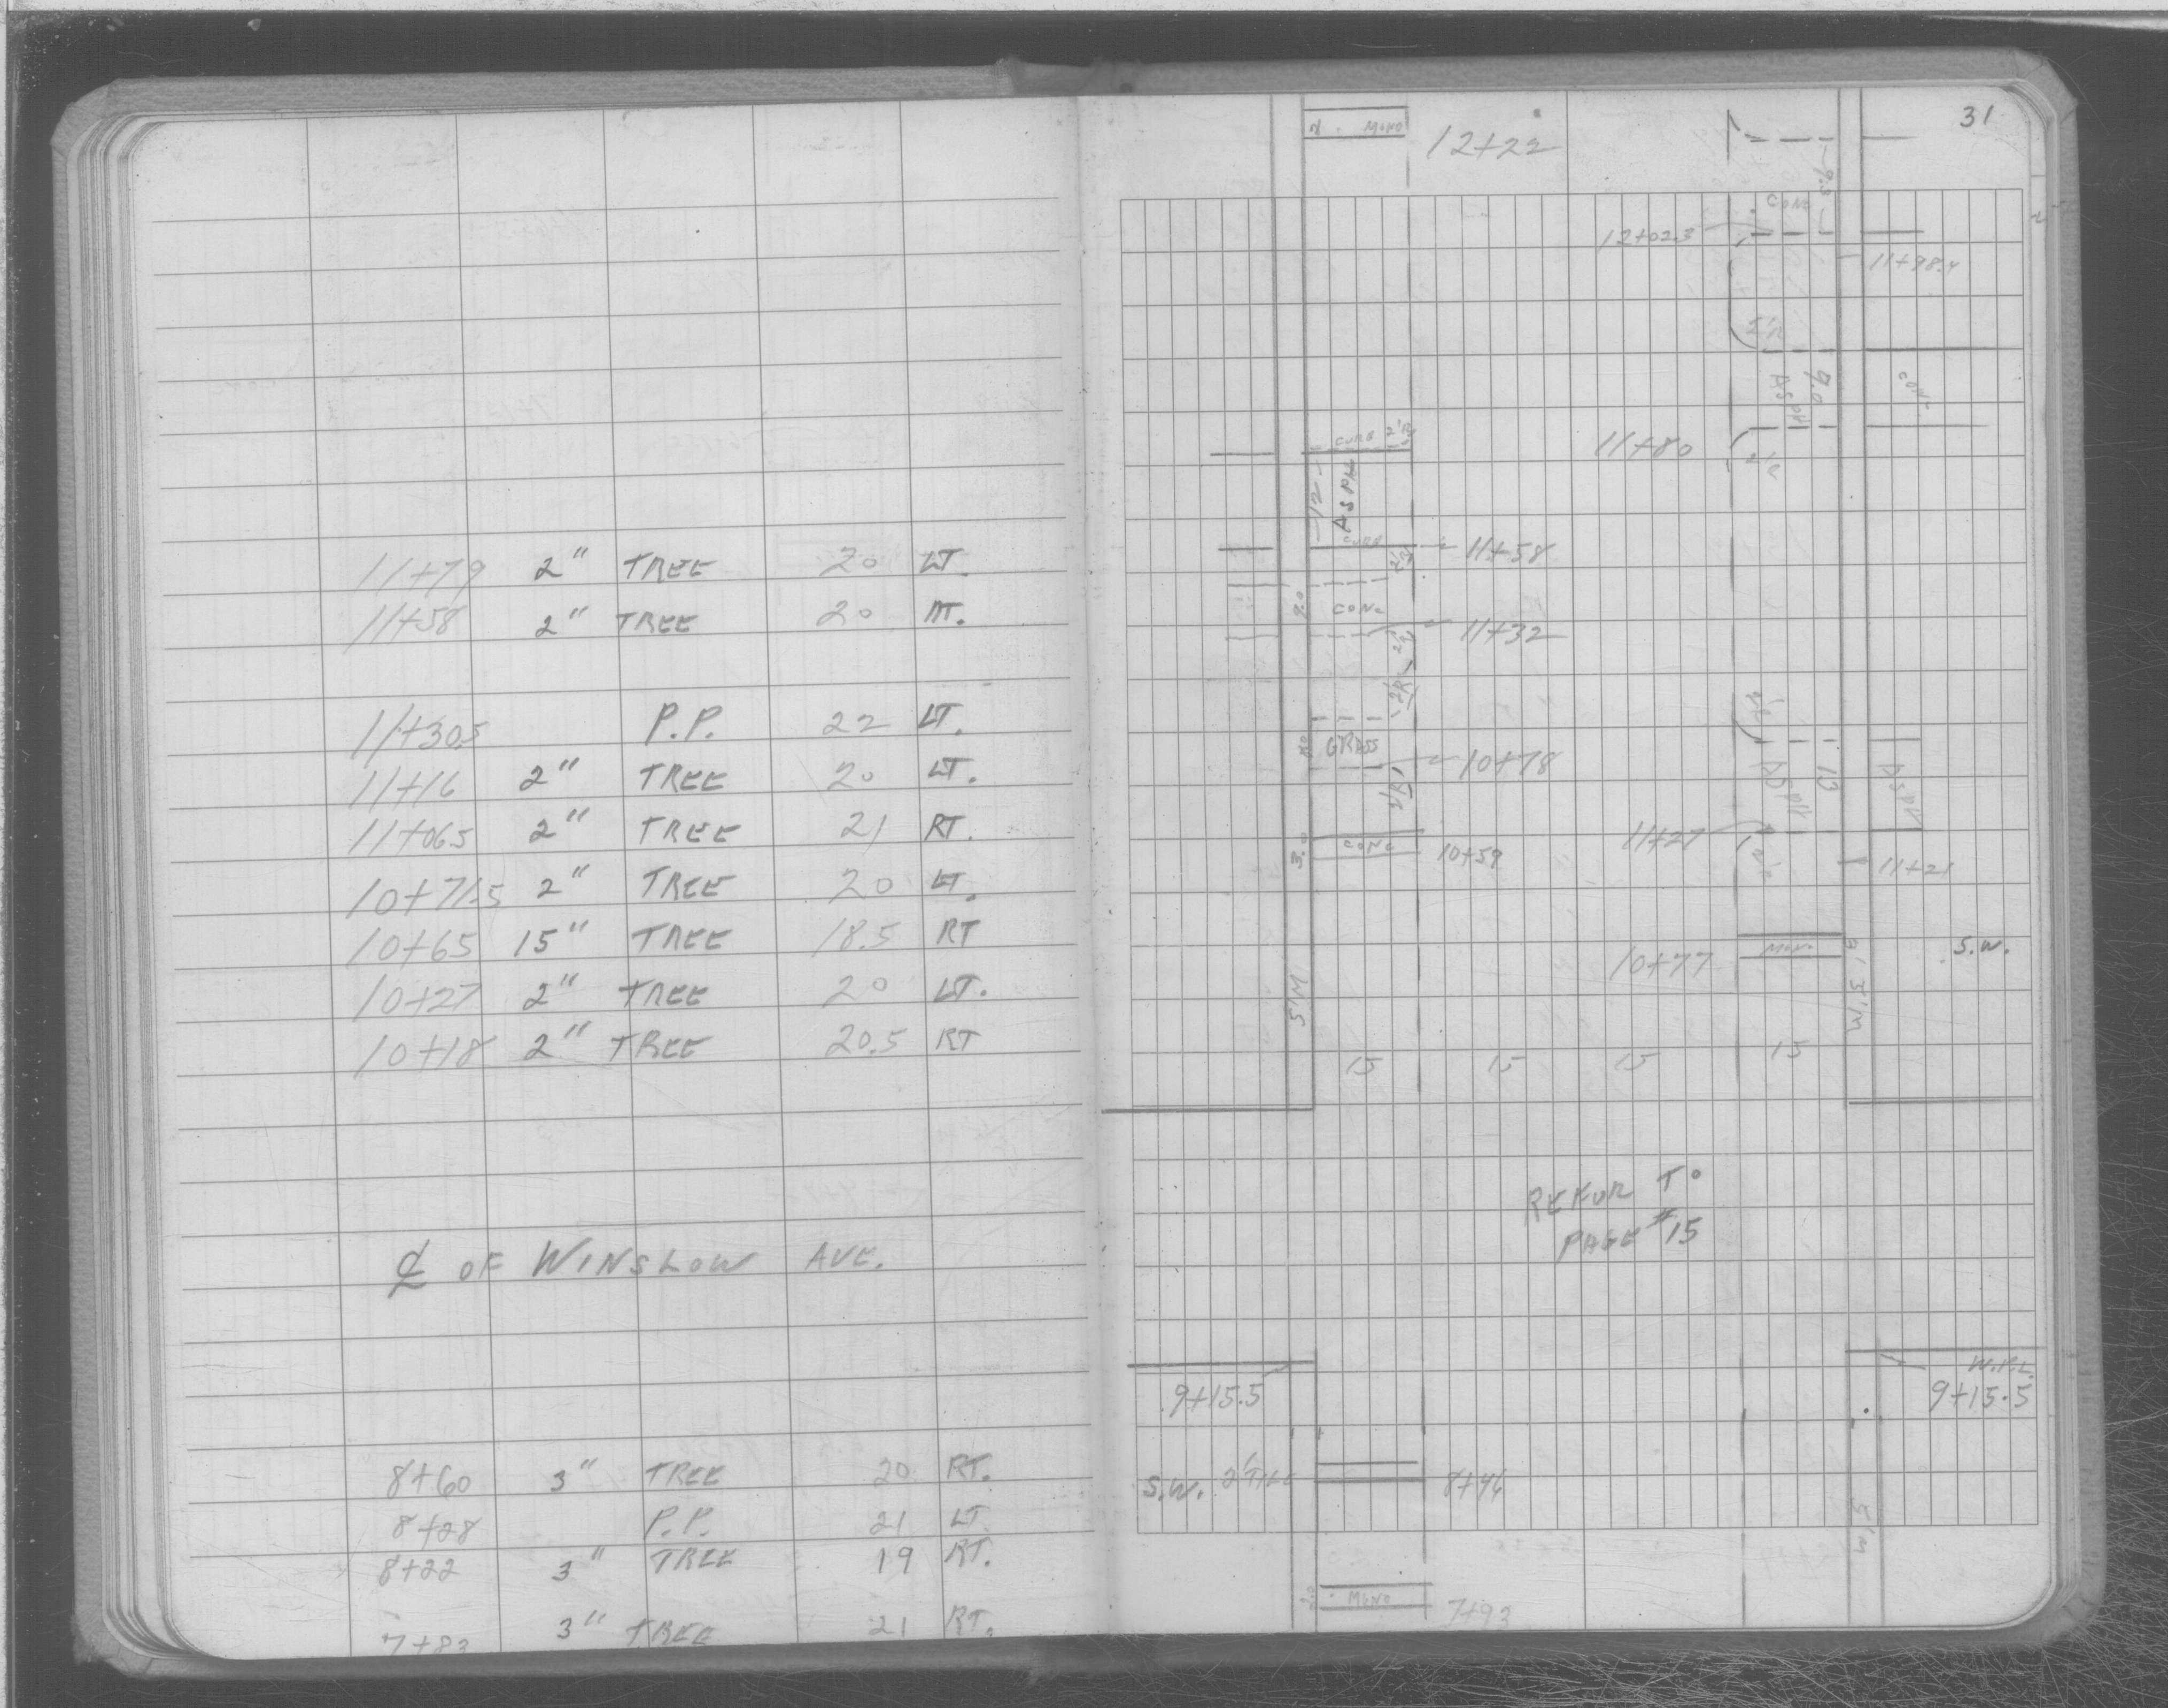 11+79 2" TREE 20 LT.
11+58 2" TREE 20 RT.
11+30.5 P.P. 22 LT.
11+16 2" TREE 20 LT.
11+06.5 2" TREE 21 RT.
10+71.5 2" TREE 20 LT.
10+65 15" TREE 18.5 RT
10+27 2" TREE 20 LT.
10+18 2" TREE 20.5 RT
℄ OF WINSLOW AVE.
8+60 3" TREE 20 RT.
8+28 P.P. 21 LT
8+22 3" TREE 19 RT.
7+83 3" TREE 21 RT.
31
MONO 12+22
9.3
CONC
12+02.3
11+98.4
2'R
9.0 ASPH
CONC.
CURB 2'R
11+80
2'R
12 ASPH
CURB
11+58
2'R
9.0 CONC
11+32
2'R
2'R
2'R
GRASS
10+78
2'R
13 ASPH
ASPH
11+27
2'R
3.0 CONC 10+59
11+21
10+77 MON.
S.W.
5'M
15 15 15 15
REFUR TO
PAGE #15
9+15.5
W.P.L.
9+15.5
S.W.
8+46
5'M
2.0 MONO 7+93